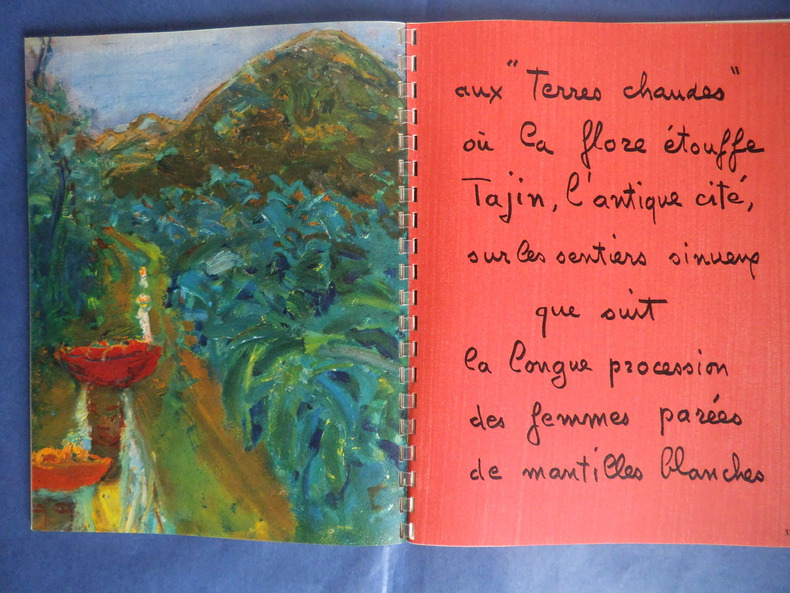 aux "Terres chaudes"
où la flore étouffe
Tajin, l'antique cité,
sur les sentiers sinueux
que suit
la longue procession
des femmes parées
de mantilles blanches